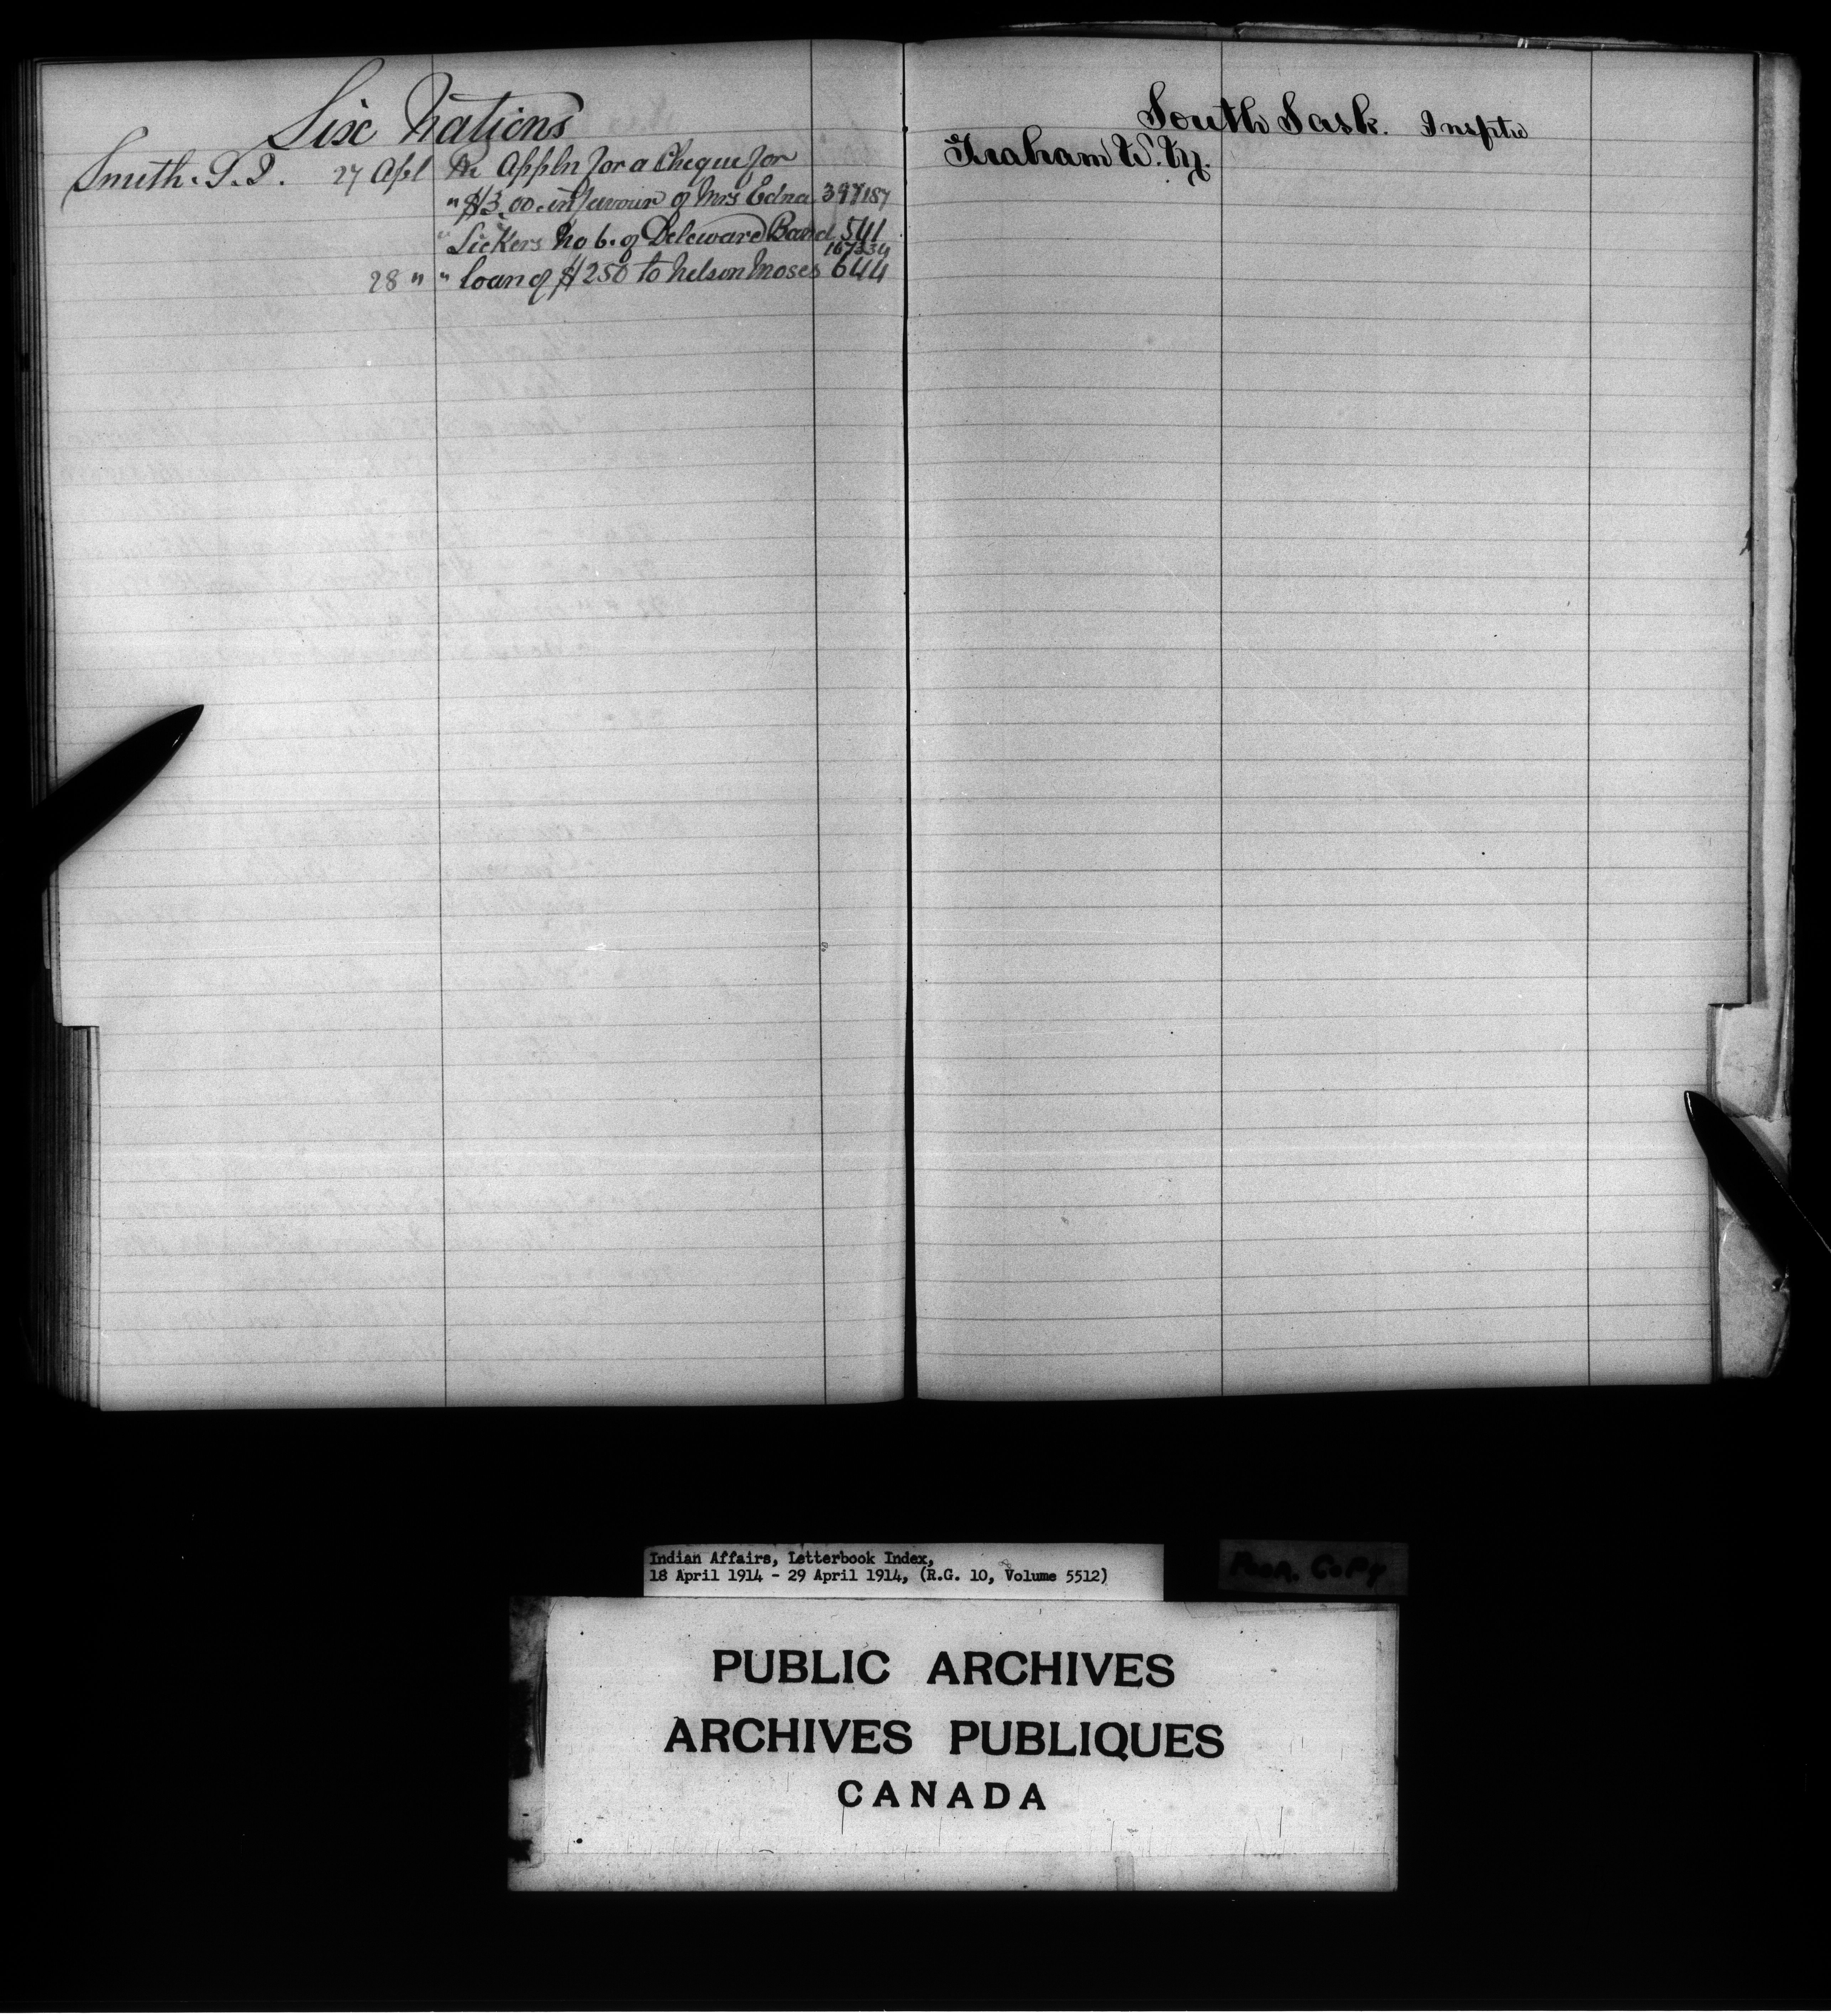 Six Nations
Smith. G. J. 27 Apl Re Appln for a Cheque for
" $3.00 in favour of Mrs Edna 397187
" Sickers No 6. of Deleware Band 541
167234
28 " " loan of $250 to Nelson Moses 644
South Sask. Insptr
Graham W. M.
Indian Affairs, Letterbook Index,
18 April 1914 - 29 April 1914, (R.G. 10, Volume 5512)
Poor. Copy
PUBLIC ARCHIVES
ARCHIVES PUBLIQUES
CANADA